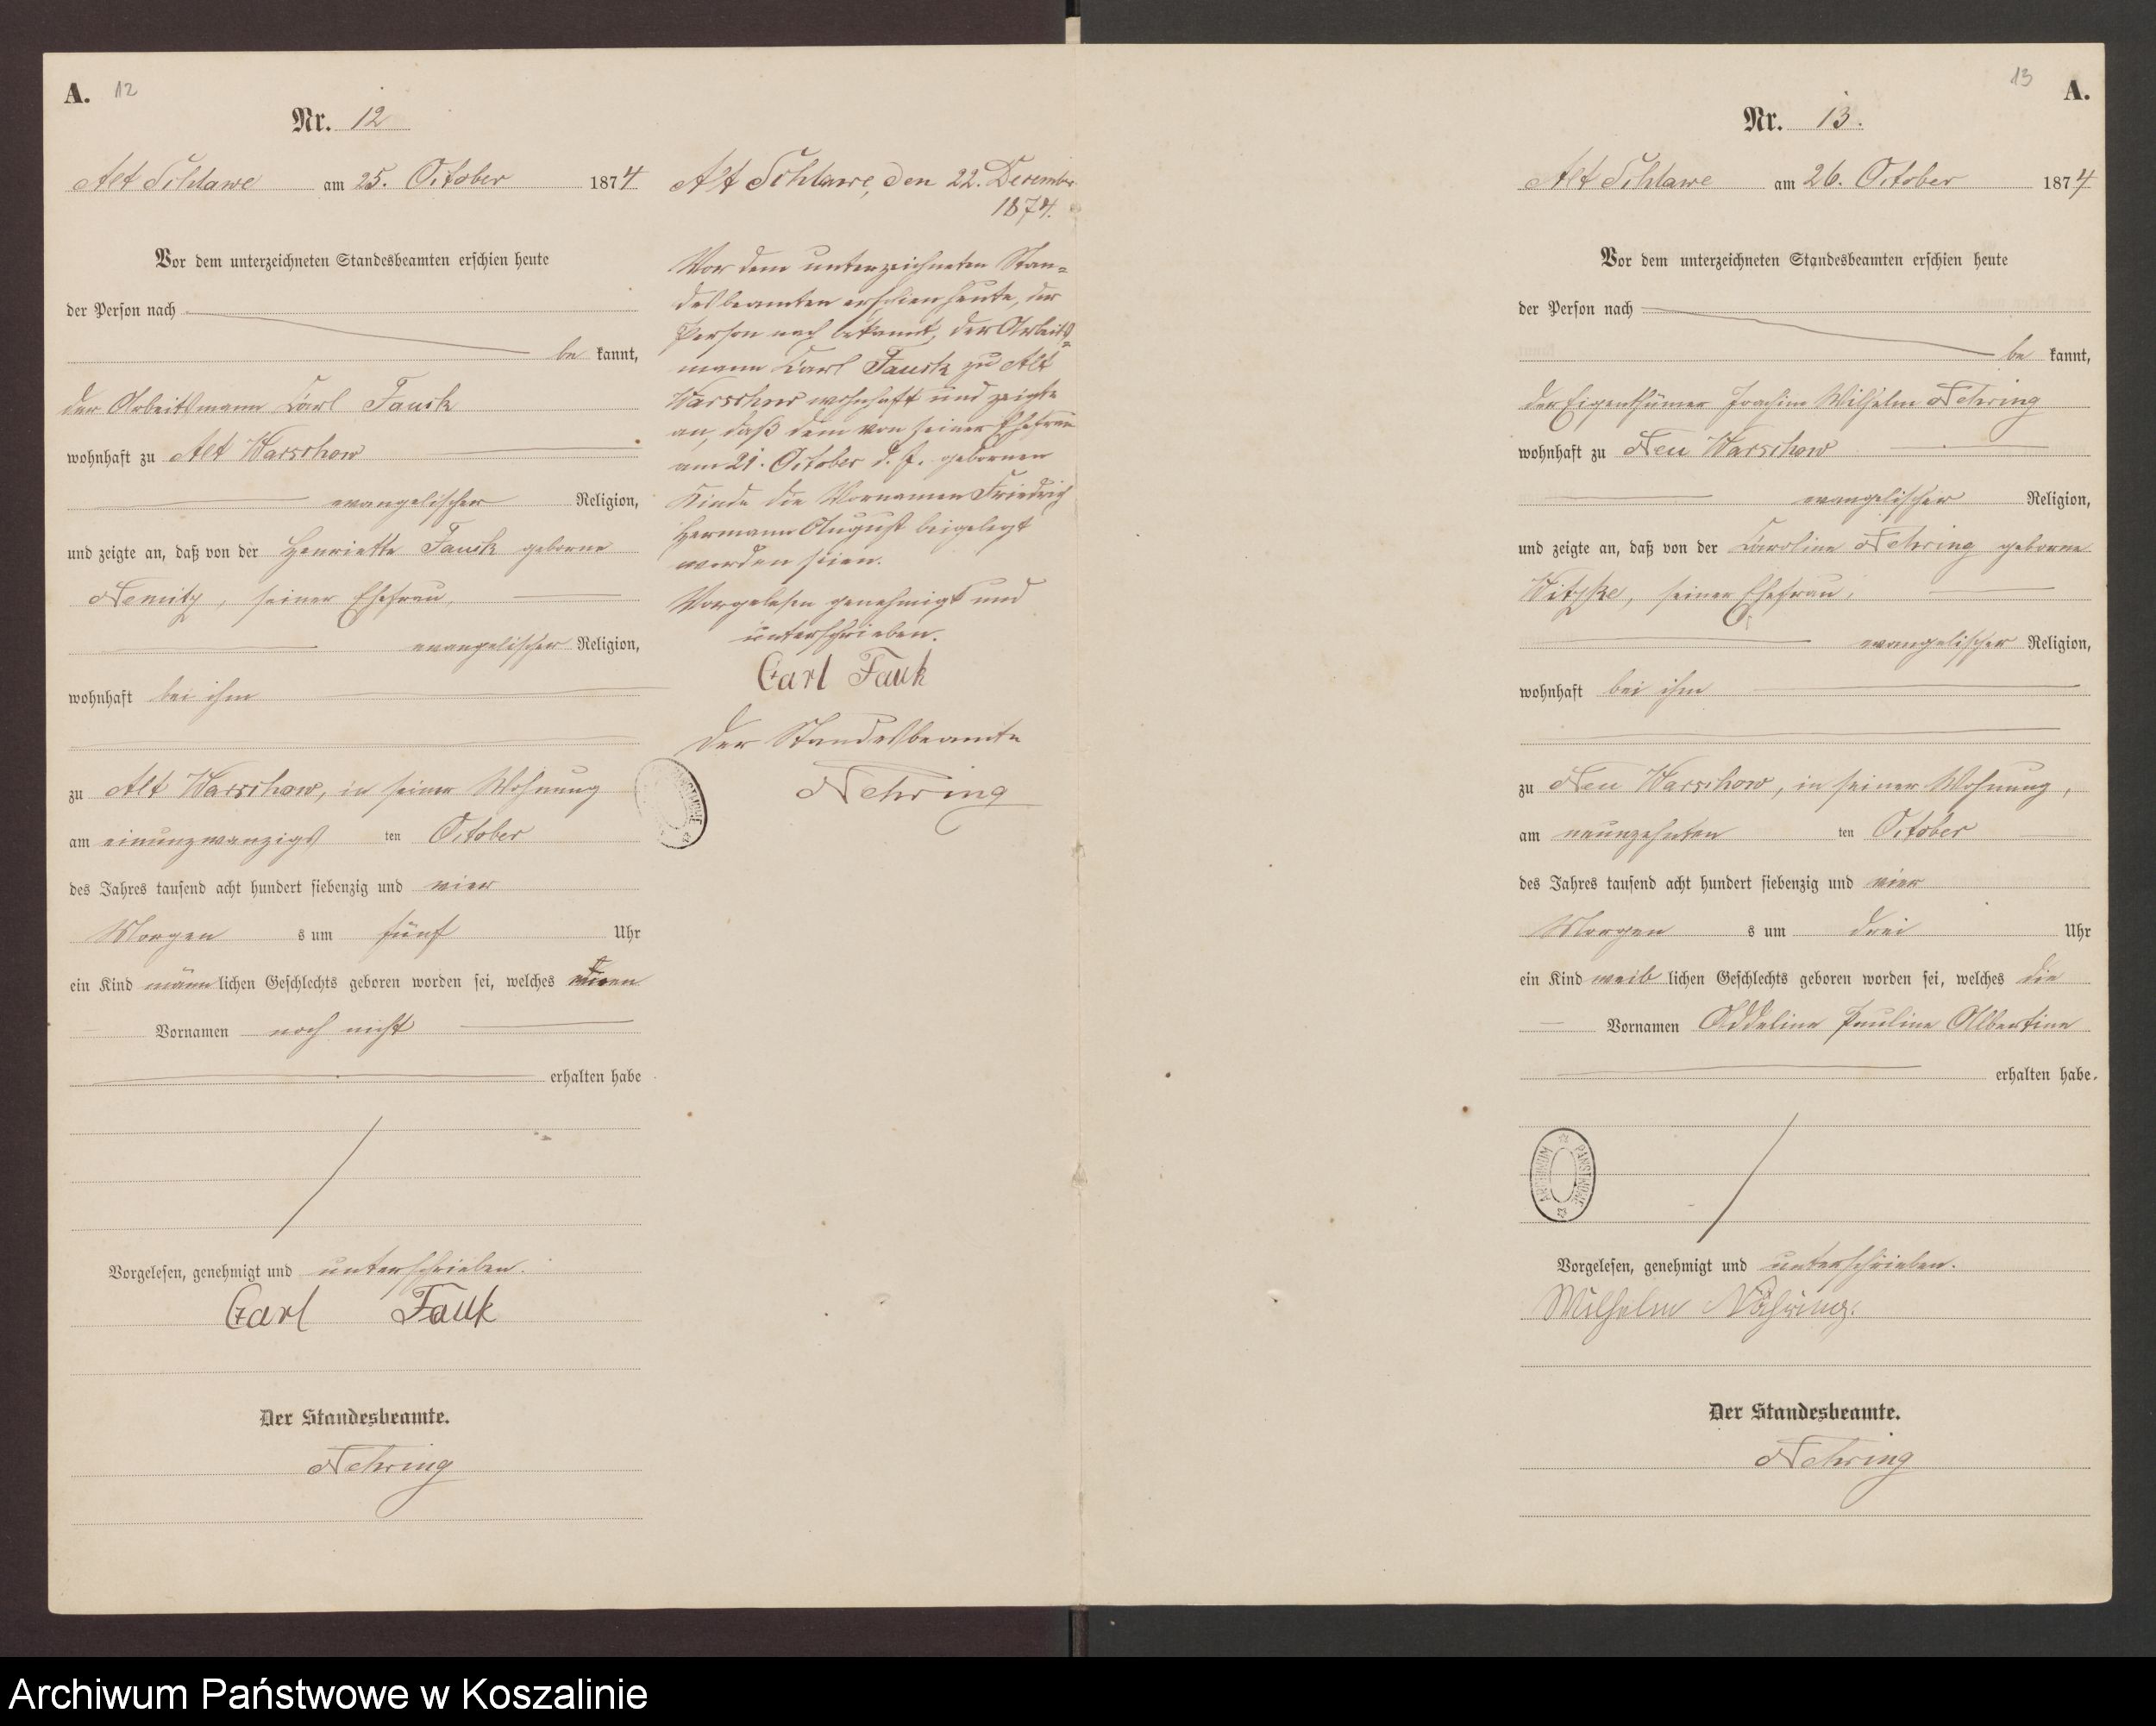 A. 12
Nr. 12
Alt Schlawe am 25. October 1874
Vor dem unterzeichneten Standesbeamten erschien heute
der Person nach
be kannt,
der Arbeitsmann Carl Fauck
wohnhaft zu Alt Warschow
evangelischer Religion,
und zeigte an, daß von der Henriette Fauck geborne
Nemitz, seiner Ehefrau,
evangelischer Religion,
wohnhaft bei ihm
zu Alt Warschow, in seiner Wohnung
am einunzwanzigs ten October
des Jahres tausend acht hundert siebenzig und vier
Morgen s um fünf Uhr
ein Kind männlichen Geschlechts geboren worden sei, welches
Vornamen noch nicht
erhalten habe
Vorgelesen, genehmigt und unterschrieben.
Carl Fauk
Der Standesbeamte.
Nehring
Alt Schlawe, den 22. December
1874.
Vor dem unterzeichneten Stan=
desbeamten erschien heute, der
Person nach bekannt, der Arbeits=
mann Carl Fauck zu Alt
Warschow wohnhaft und zeigte
an, daß dem von seiner Ehefrau
am 21. October d. J. gebornen
Kinde die Vornamen Friedrich
Hermann August beigelegt
worden seien.
Vorgelesen genehmigt und
unterschrieben.
Carl Fauk
Der Standesbeamte
Nehring
13 A.
Nr. 13.
Alt Schlawe am 26. October 1874
Vor dem unterzeichneten Standesbeamten erschien heute
der Person nach
be kannt,
der Eigenthümer Joachim Wilhelm Nehring
wohnhaft zu Neu Warschow
evangelischer Religion,
und zeigte an, daß von der Caroline Nehring geborne
Witzke, seiner Ehefrau,
evangelischer Religion,
wohnhaft bei ihm
zu Neu Warschow, in seiner Wohnung,
am neunzehnten ten October
des Jahres tausend acht hundert siebenzig und vier
Morgen s um drei Uhr
ein Kind weiblichen Geschlechts geboren worden sei, welches die
Vornamen Addeline Pauline Albertine
erhalten habe.
ARCHIWUM PAŃSTWOWE
Vorgelesen, genehmigt und unterschrieben.
Wilhelm Nähring.
Der Standesbeamte.
Nehring
Archiwum Państwowe w Koszalinie